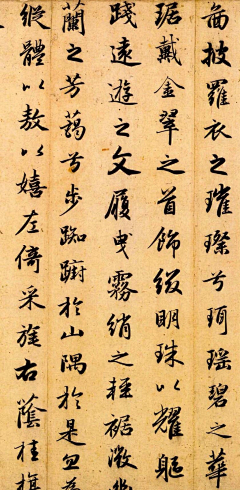 啚披羅衣之璀璨兮珥瑤碧之華
琚戴金翠之首飾綴明珠以耀軀
踐遠遊之文履曳霧綃之輕裾微幽
蘭之芳藹兮步踟躕於山隅於是忽焉
縱體以敖以嬉左倚采旄右蔭桂旗